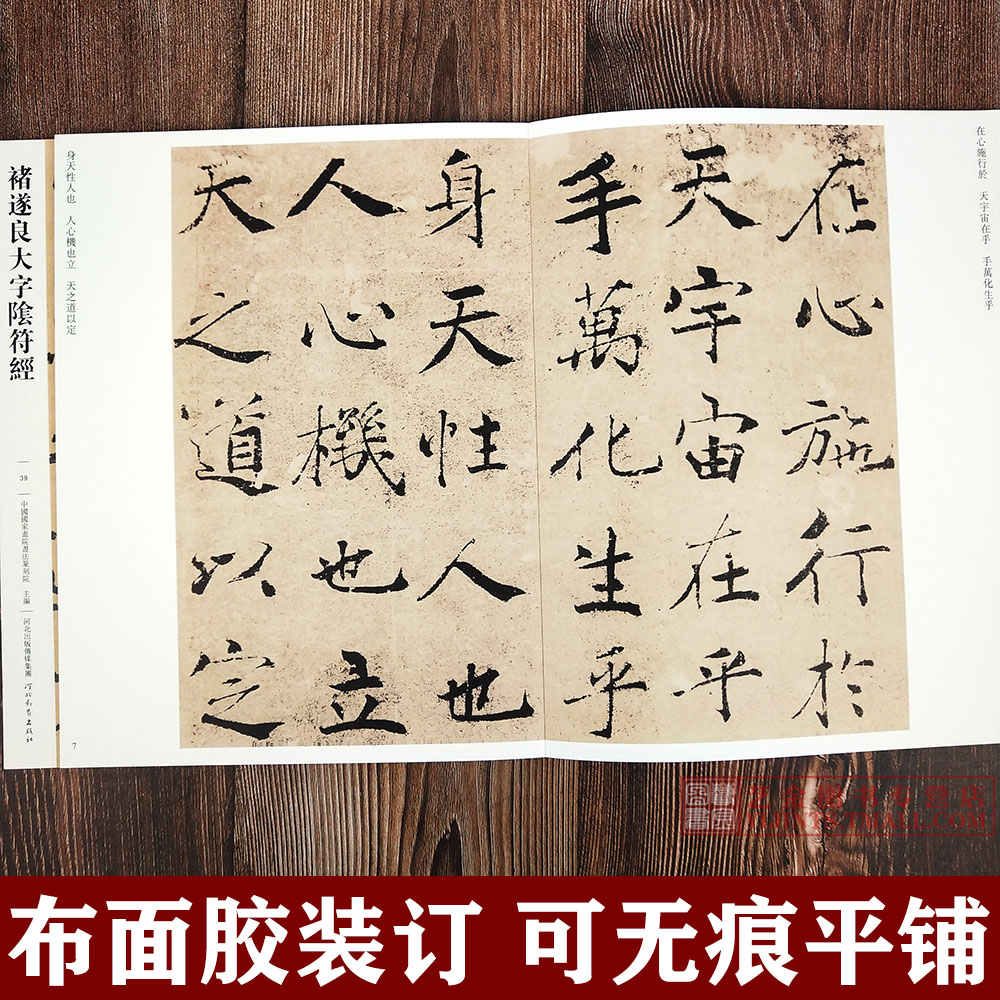 在心施行於 天宇宙在乎 手萬化生乎
在心施行於
天宇宙在乎
手萬化生乎
身天性人也
人心機也立
天之道以定
身天性人也 人心機也立 天之道以定
7
褚遂良大字隂符經
39
中國國家畫院書法篆刻院 主編
河北出版傳媒集團
河北教育出版社
布面胶装订 可无痕平铺